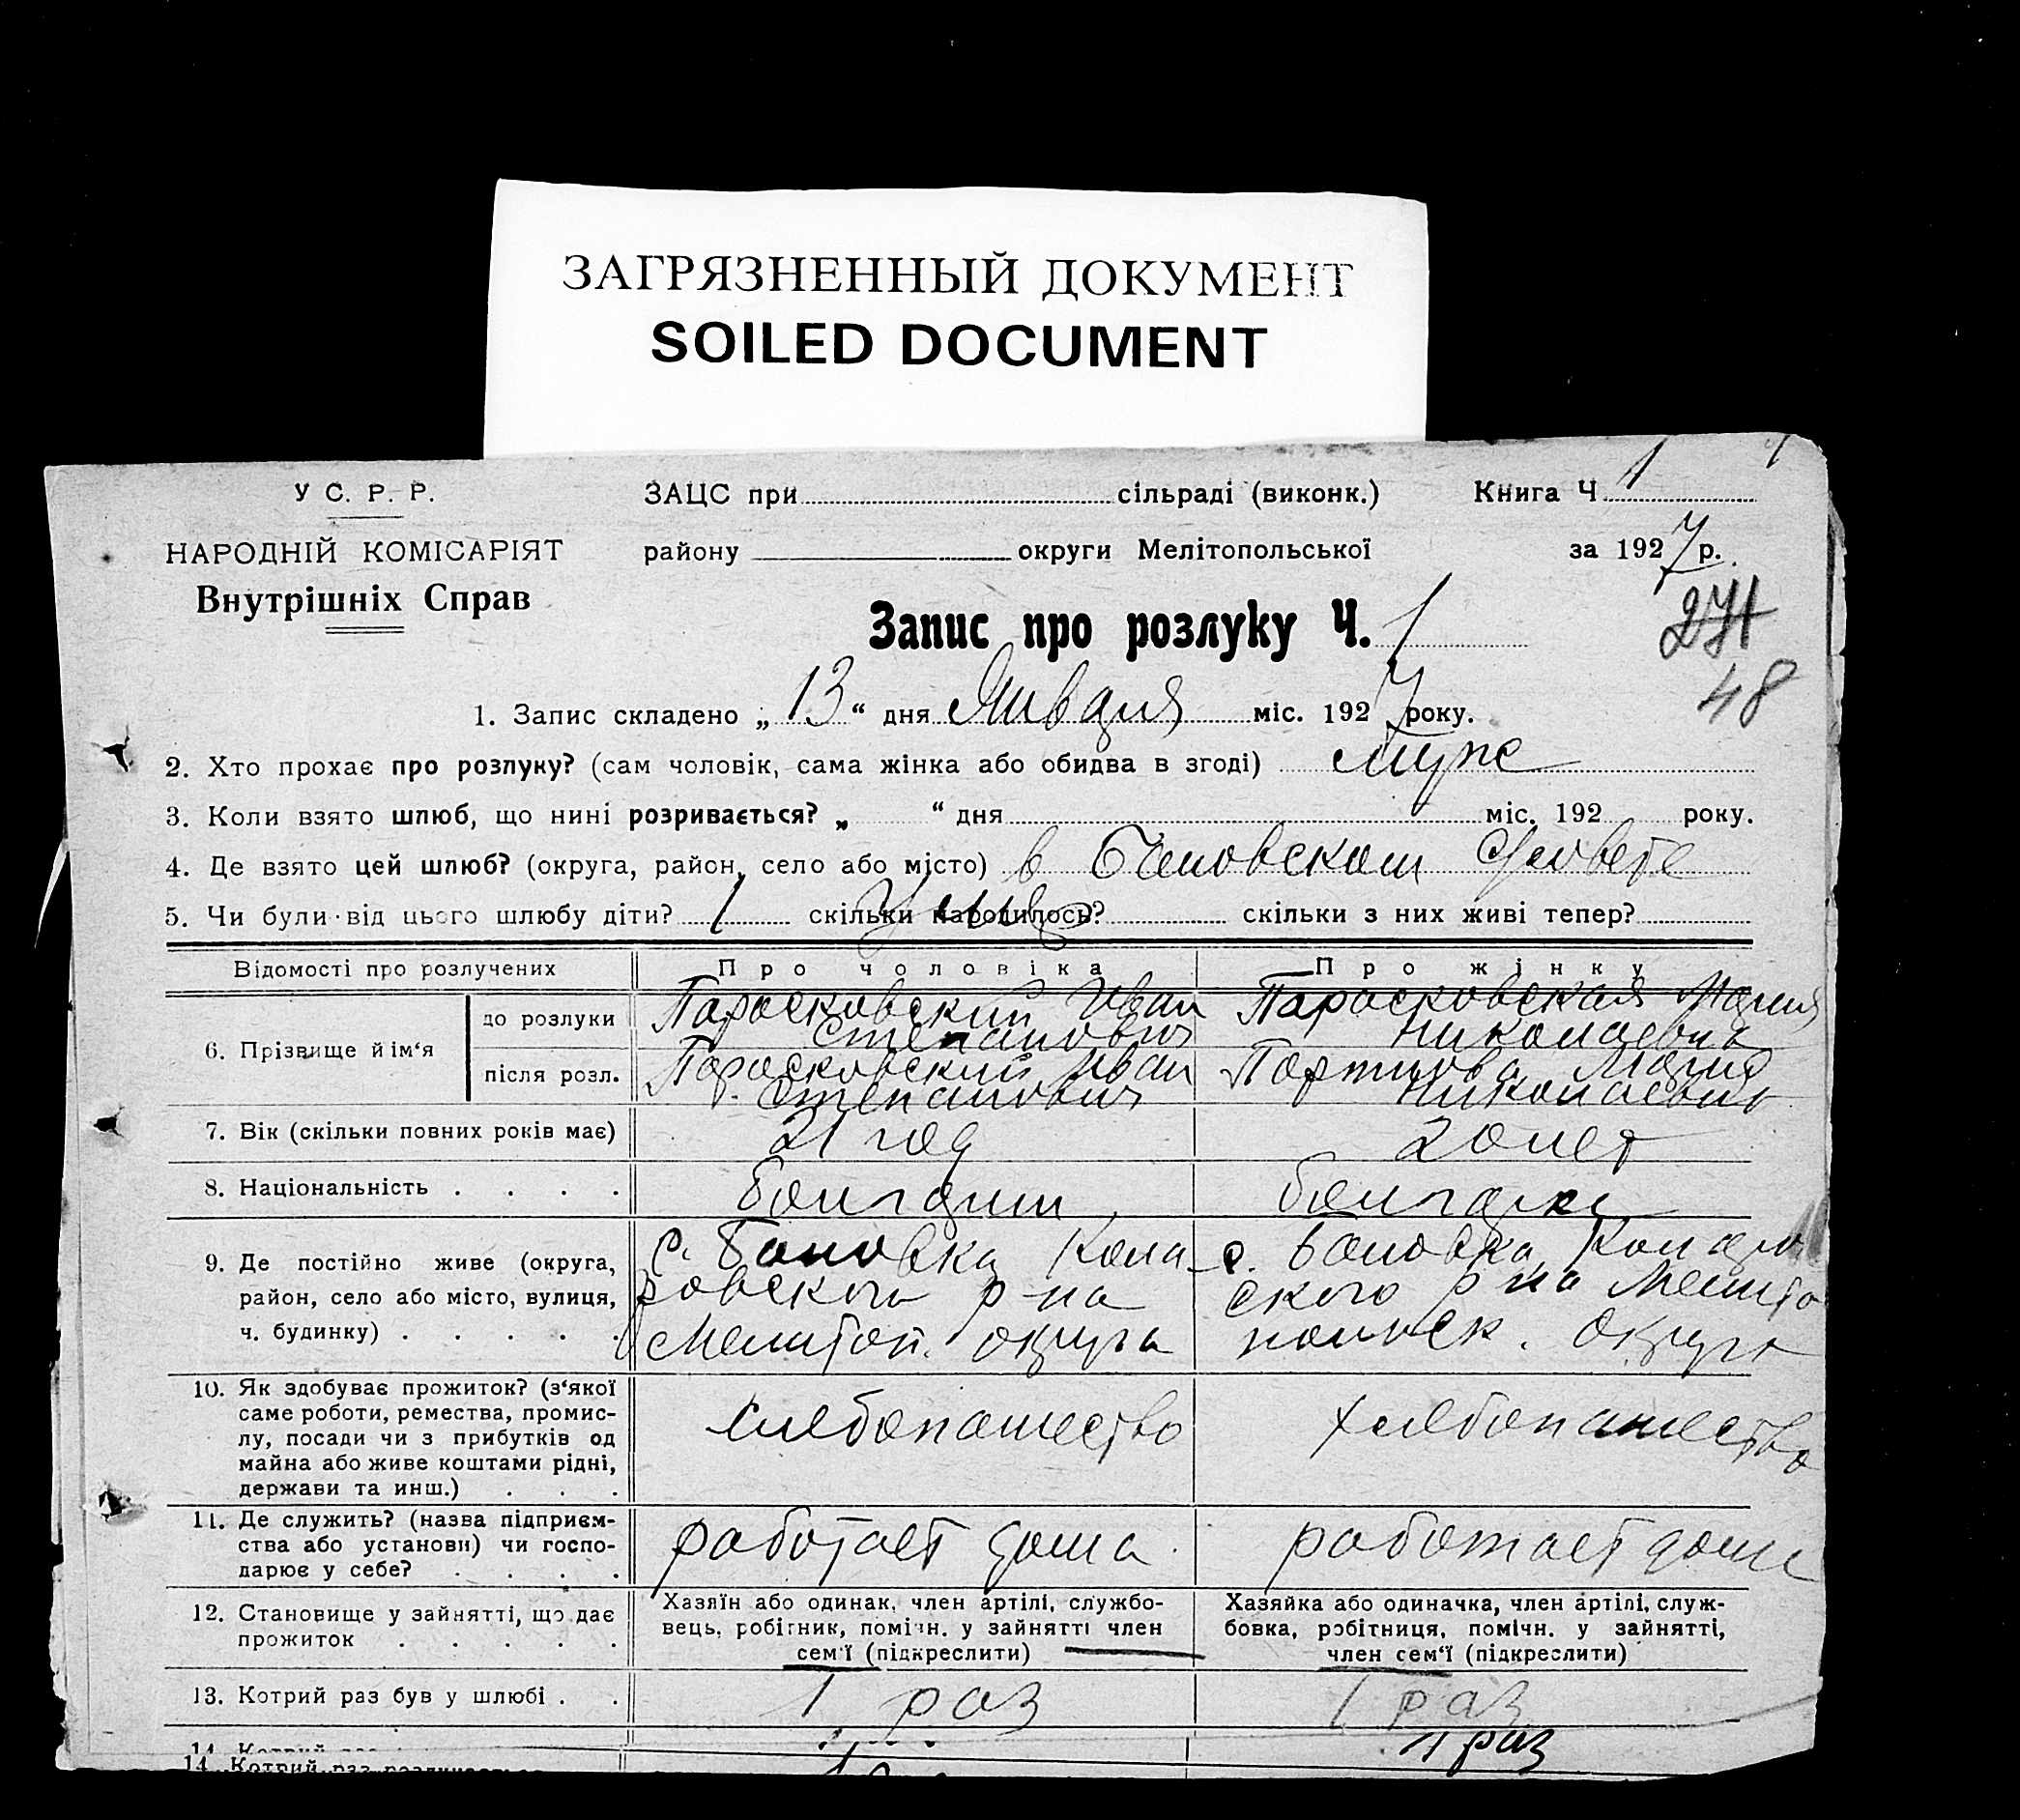 ЗАГРЯЗНЕННЫЙ ДОКУМЕНТ
SOILED DOCUMENT
У С. Р. Р.
ЗАЦС при сільраді (виконк.)
Книга Ч. 1
НАРОДНІЙ КОМІСАРІЯТ
району округи Мелітопольської
за 1927 р.
Внутрішніх Справ
Запис про розлуку Ч. 1
271
48
1. Запис складено „13“ дня Января міс. 1927 року.
2. Хто прохає про розлуку? (сам чоловік, сама жінка або обидва в згоді)
3. Коли взято шлюб, що нині розривається? „ “ дня міс. 192 року.
4. Де взято цей шлюб? (округа, район, село або місто) в Бановском
5. Чи були від цього шлюбу діти? 1 скільки народилось? скільки з них живі тепер?
Відомості про розлучених
Про чоловіка
Про жінку
6. Прізвище й ім‘я
до розлуки
Парасковский Иван
Степанович
Парасковская Мария
Николаевна
після розл.
Парасковский Иван
Степанович
Мария
Николаевна
7. Вік (скільки повних років має)
21 год
20 лет
8. Національність . . . .
болгарин
болгарка
9. Де постійно живе (округа,
район, село або місто, вулиця,
ч. будинку) . . . . .
с. Бановка Кола
ровского р-на
Мелитоп. округа
с. Бановка Коларов
ского р-на Мелито
польск. округа
10. Як здобуває прожиток? (з‘якої
саме роботи, ремества, промис-
лу, посади чи з прибутків од
майна або живе коштами рідні,
держави та инш.) . . .
хлебопашество
хлебопашество
11. Де служить? (назва підприєм-
ства або установи) чи госпо-
дарює у себе? . . . .
работает дома
работает дома
12. Становище у зайнятті, що дає
прожиток . . . . .
Хазяїн або одинак, член артілі, службо-
вець, робітник, помічн. у зайнятті член
сем‘ї (підкреслити)
Хазяйка або одиначка, член артілі, служ-
бовка, робітниця, помічн. у зайнятті,
член сем‘ї (підкреслити)
13. Котрий раз був у шлюбі . .
1 раз
1 раз
14. Котрий раз
1 раз
14. Котрий раз